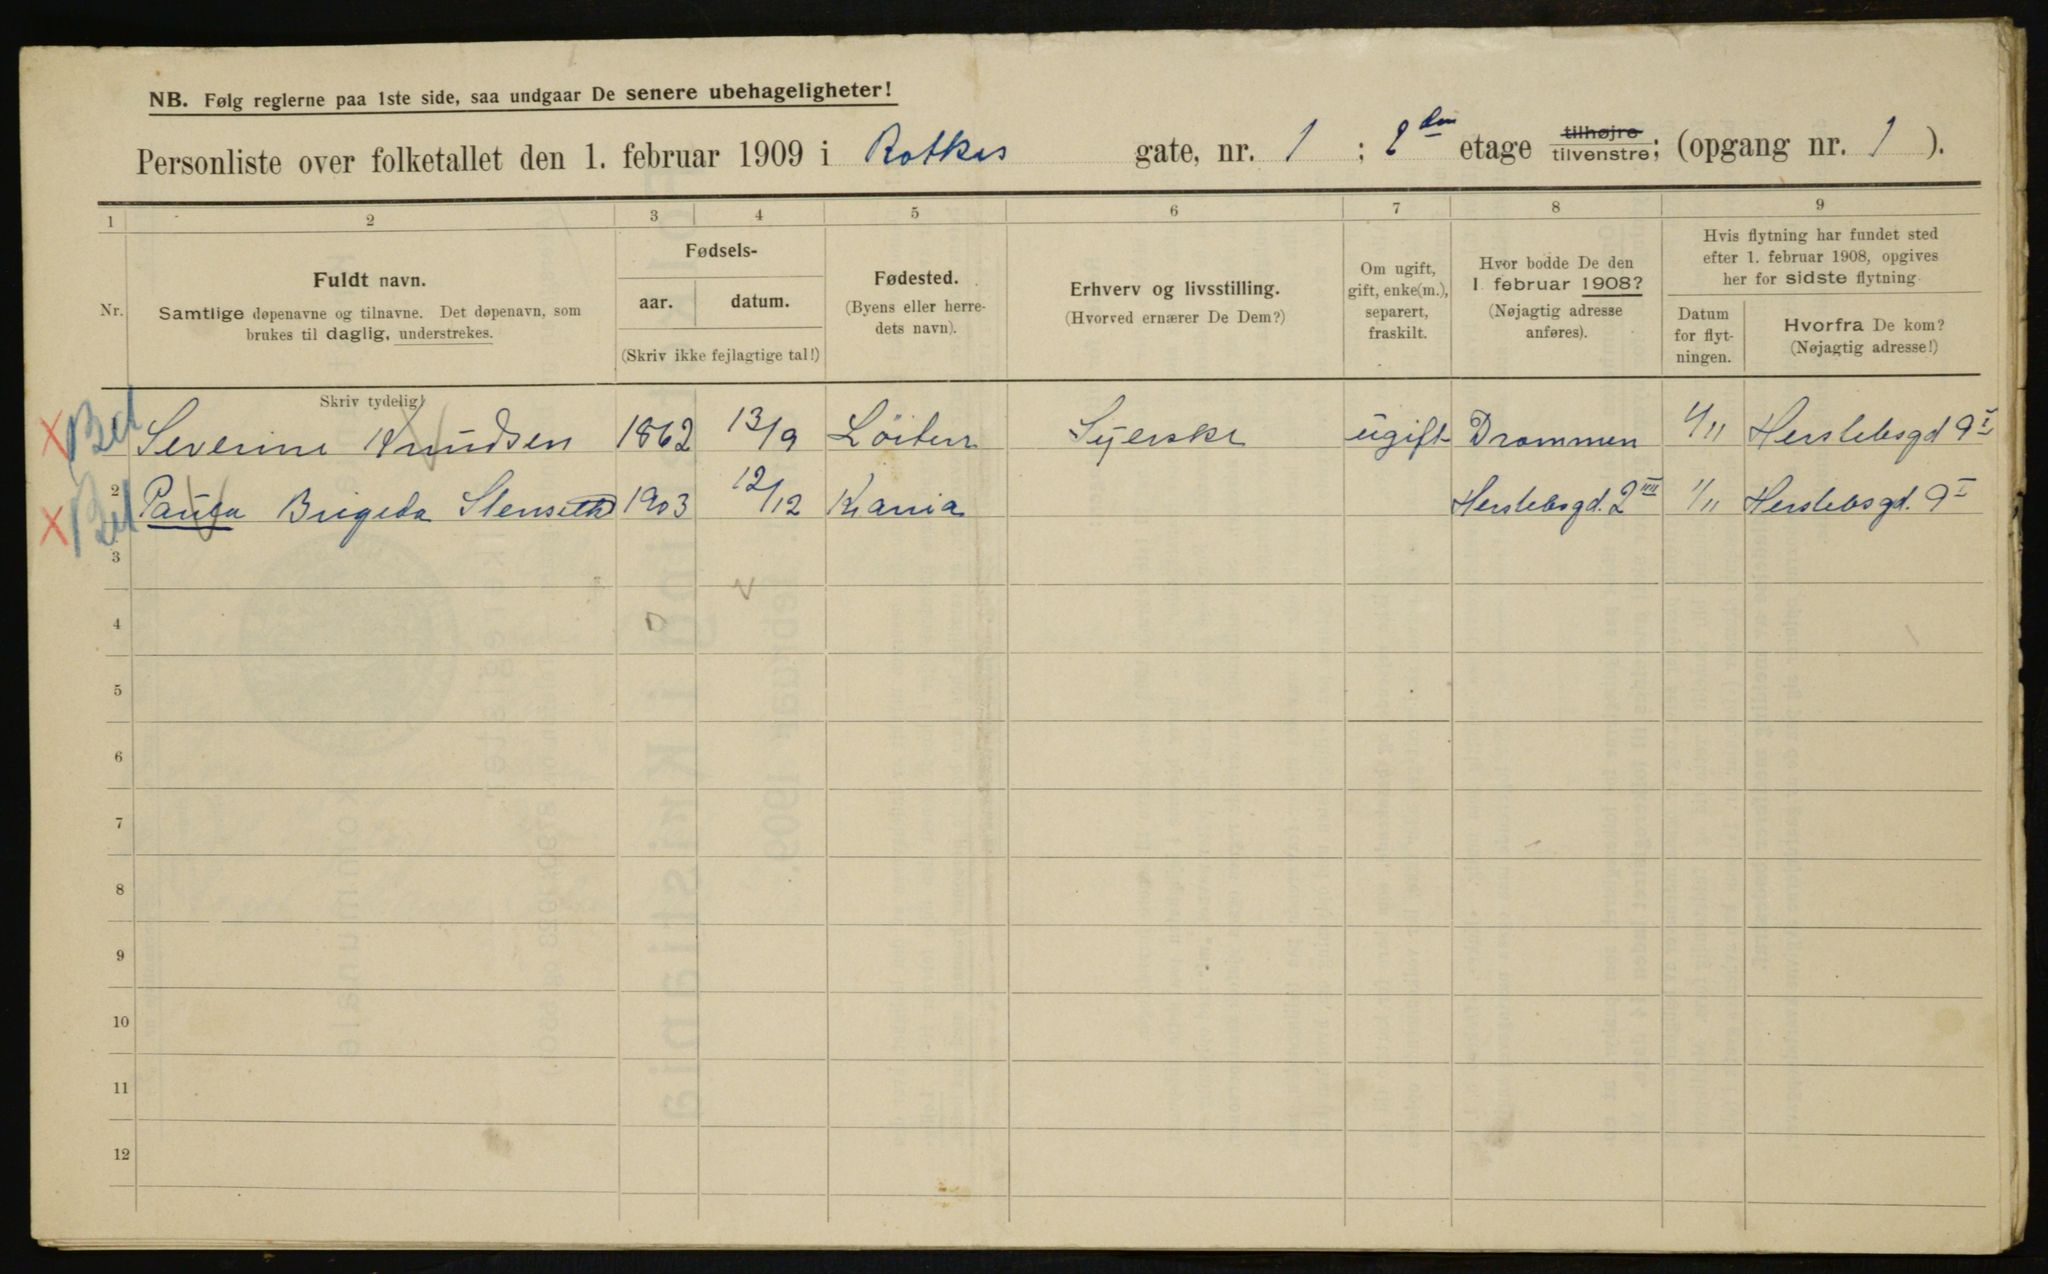 NB. Følg reglerne paa 1ste side, saa undgaar De senere ubehageligheter!
Personliste over folketallet den 1. februar 1909 i Rathkes gate, nr. 1 ; 2den etage tilhøjre tilvenstre; (opgang nr. 1 ).
1 2 3 4 5 6 7 8 9
Nr.
Fuldt navn.
Samtlige døpenavne og tilnavne. Det døpenavn, som
brukes til daglig, understrekes.
Fødsels-
aar. datum.
(Skriv ikke fejlagtige tal!)
Fødested.
(Byens eller herre-
dets navn).
Erhverv og livsstilling.
(Hvorved ernærer De Dem?)
Om ugift,
gift, enke(m.),
separert,
fraskilt.
Hvor bodde De den
1. februar 1908?
(Nøjagtig adresse
anføres).
Hvis flytning har fundet sted
efter 1. februar 1908, opgives
her for sidste flytning
Datum
for flyt-
ningen.
Hvorfra De kom?
(Nøjagtig adresse!)
Skriv tydelig!
Severine Knudsen 1862 13/9 Löiten Syerske ugift Drammen 1/11 Herslebsgd 9 I
2 Paula Brigeda Stenseth 1903 12/12 Krania Herslebsgd. 2 III 1/11 Herslebsgd. 9 I
3
4
5
6
7
8
9
10
11
12